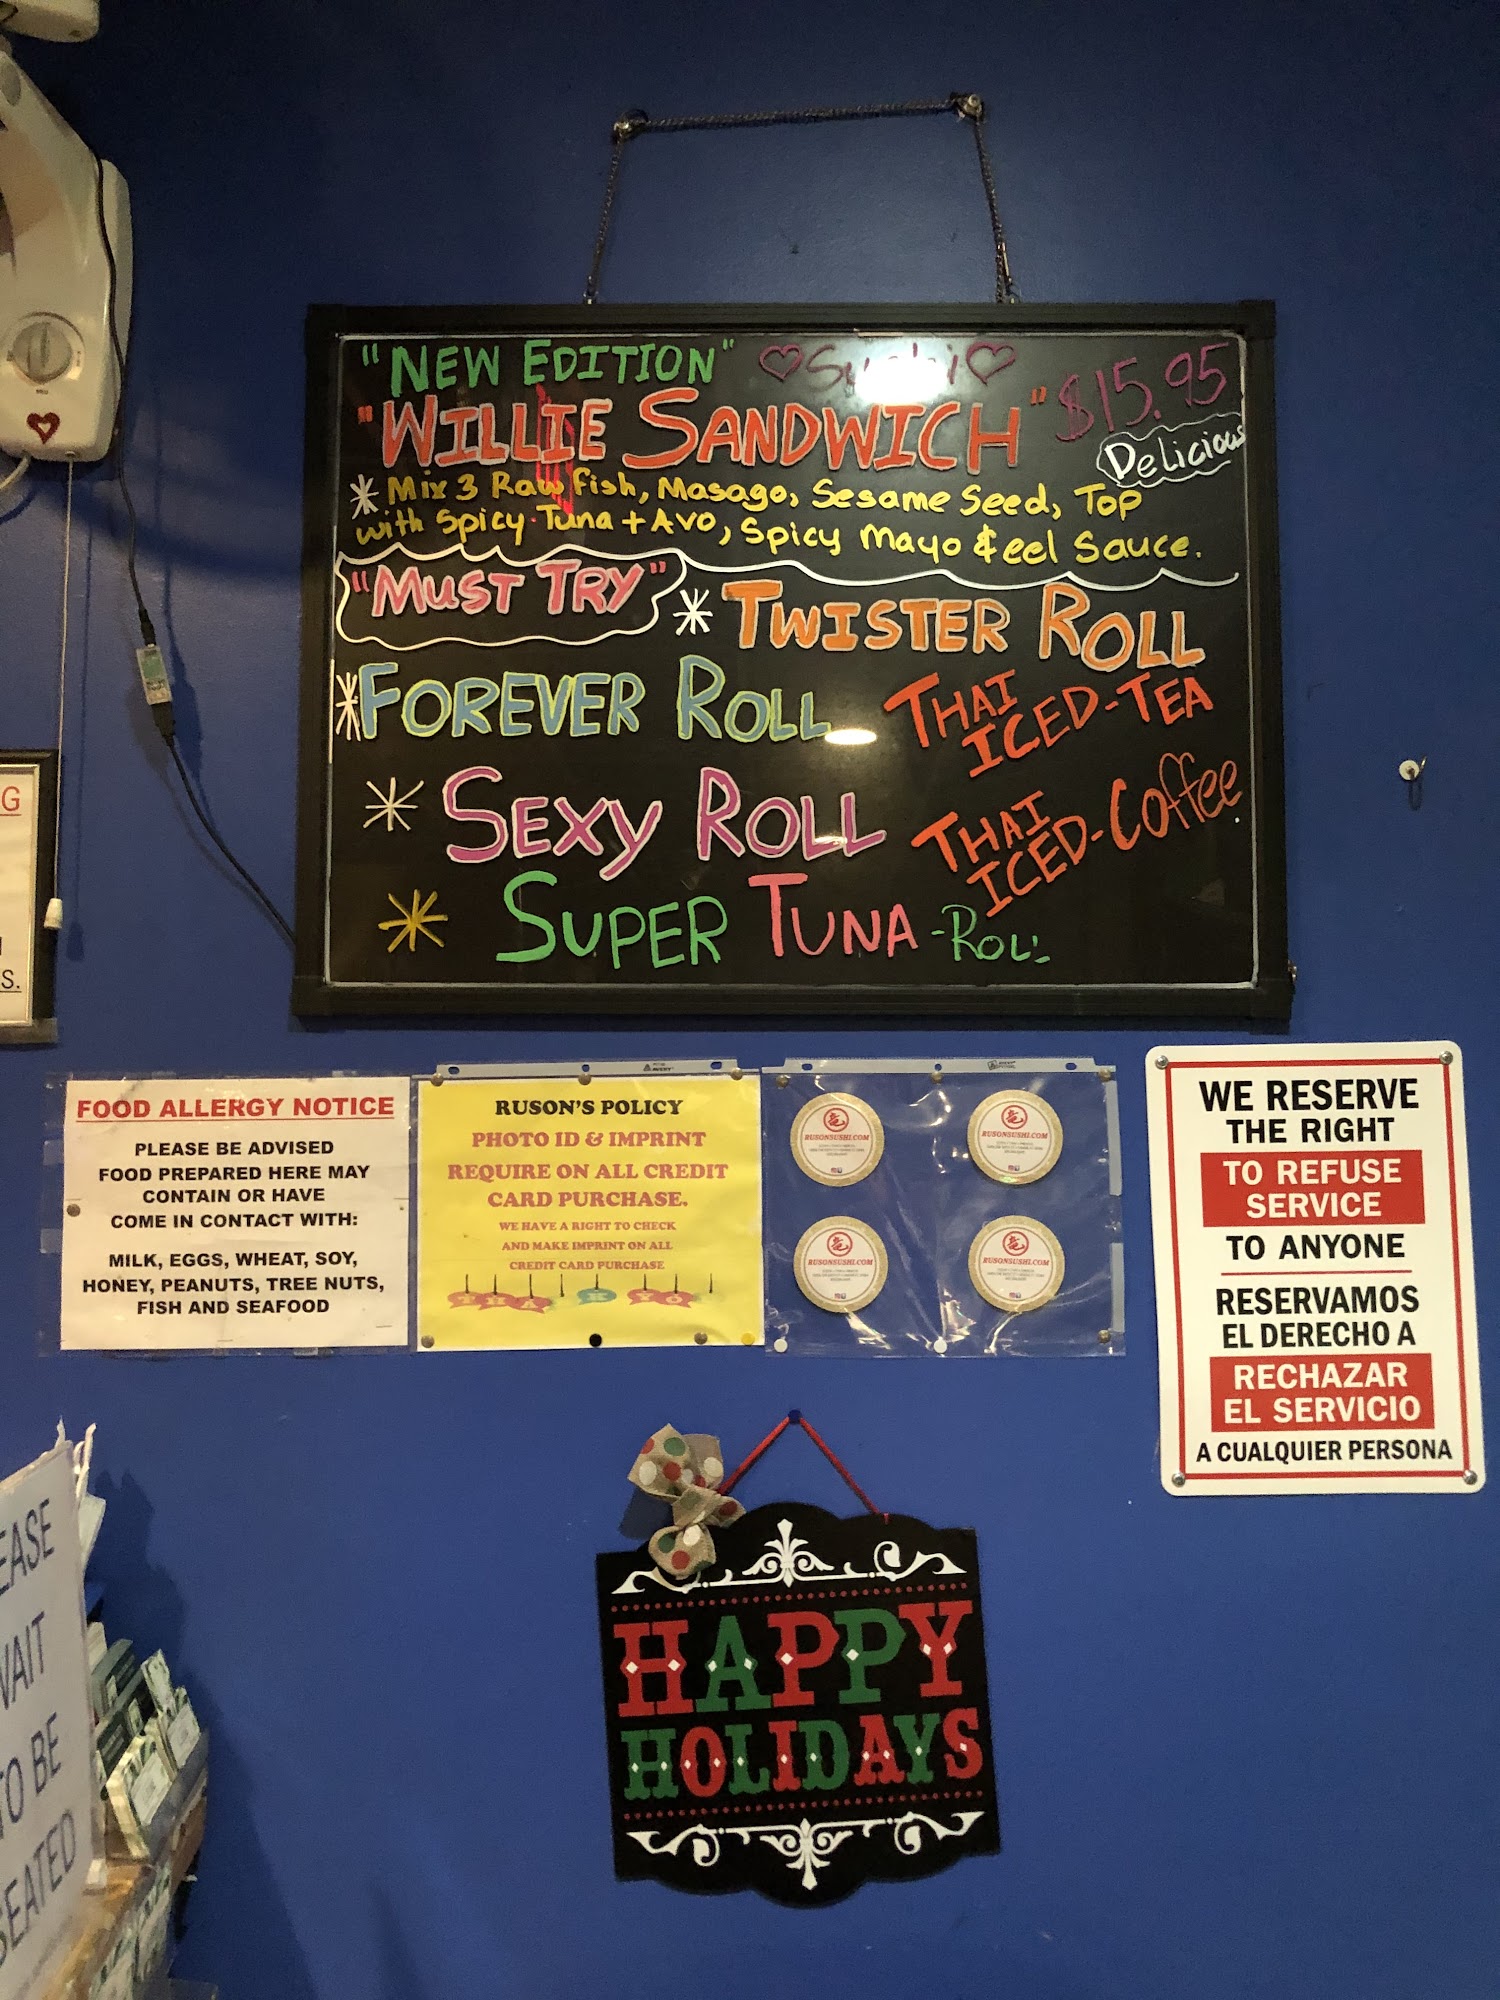 "NEW EDITION" ♡Sushi♡ $15.95
"WILLIE SANDWICH" Delicious
* Mix 3 Raw Fish, Masago, Sesame Seed, Top
with Spicy Tuna + Avo, Spicy Mayo & eel Sauce.
"MUST TRY" * TWISTER ROLL
* FOREVER ROLL
THAI
ICED-TEA
* SEXY ROLL
THAI
ICED-Coffee
* SUPER TUNA-ROLL
G
S.
FOOD ALLERGY NOTICE
PLEASE BE ADVISED
FOOD PREPARED HERE MAY
CONTAIN OR HAVE
COME IN CONTACT WITH:
MILK, EGGS, WHEAT, SOY,
HONEY, PEANUTS, TREE NUTS,
FISH AND SEAFOOD
RUSON'S POLICY
PHOTO ID & IMPRINT
REQUIRE ON ALL CREDIT
CARD PURCHASE.
WE HAVE A RIGHT TO CHECK
AND MAKE IMPRINT ON ALL
CREDIT CARD PURCHASE
AVERY
RUSONSUSHI.COM
RUSONSUSHI.COM
RUSONSUSHI.COM
RUSONSUSHI.COM
WE RESERVE
THE RIGHT
TO REFUSE
SERVICE
TO ANYONE
RESERVAMOS
EL DERECHO A
RECHAZAR
EL SERVICIO
A CUALQUIER PERSONA
EASE
WAIT
TO BE
SEATED
HAPPY
HOLIDAYS